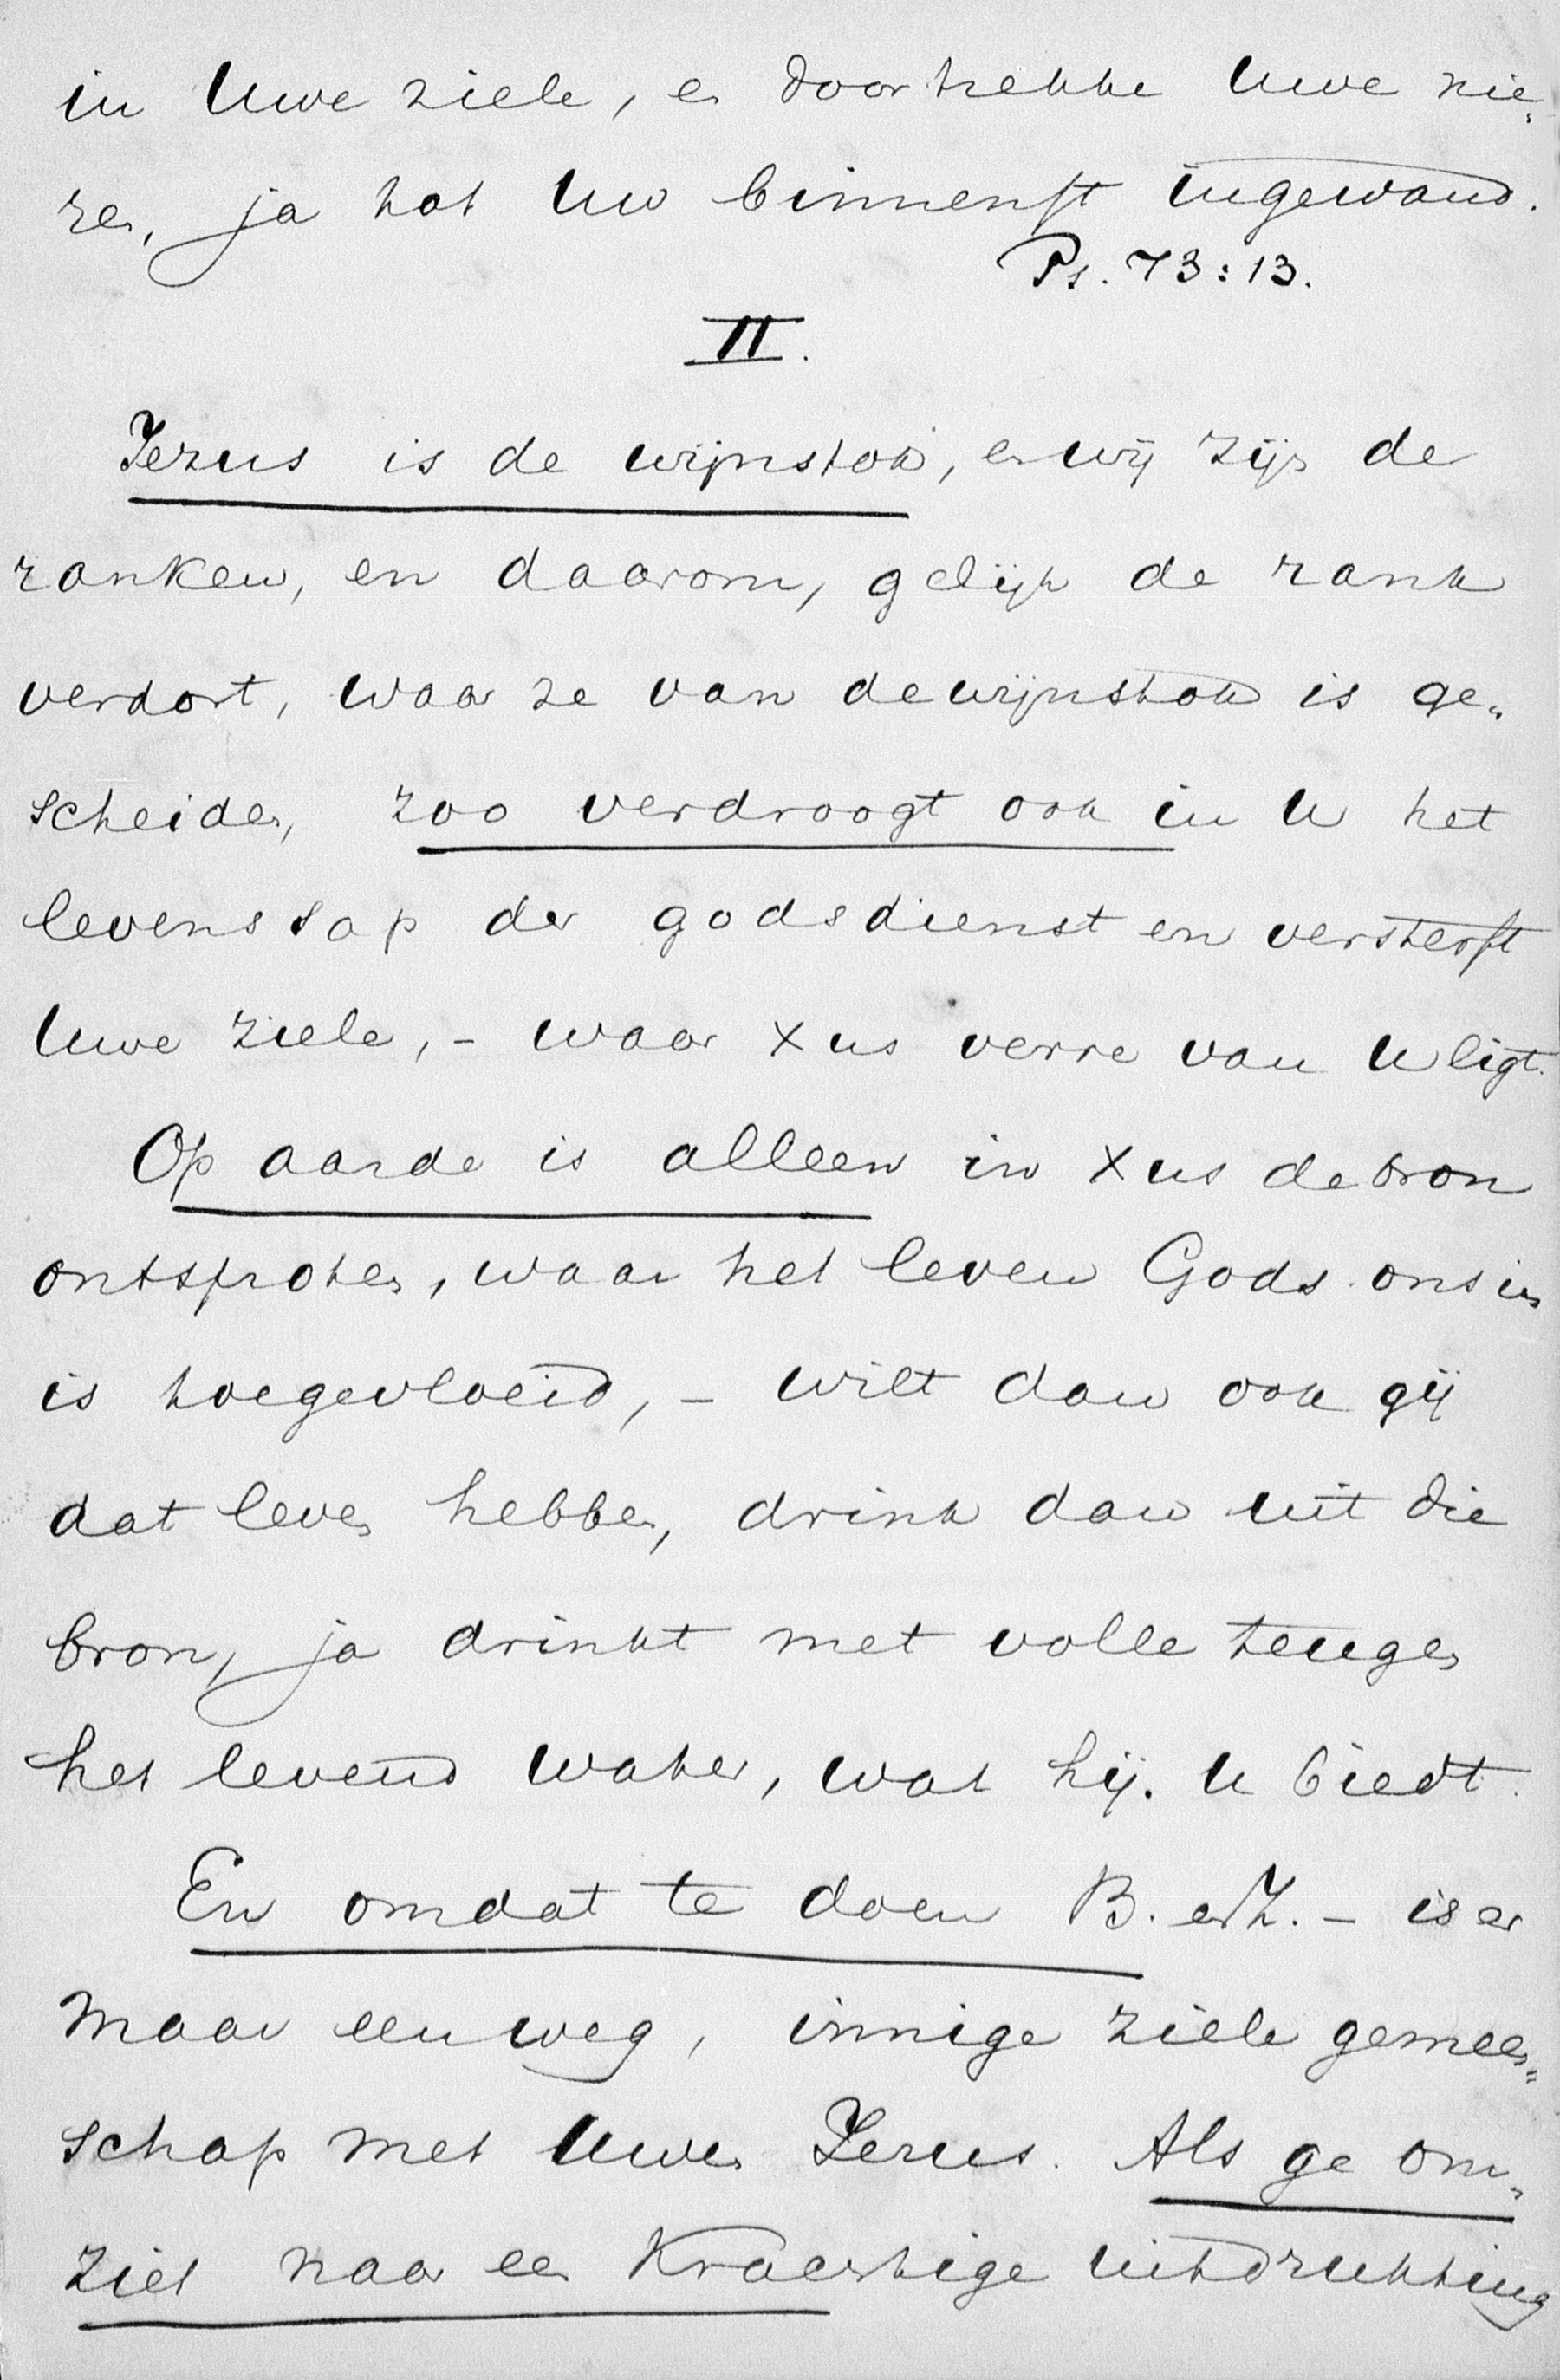 in Uwe ziele, en doortrekke Uwe nie„
ren, ja tot Uw binnenst ingewand.
Ps. 73:13.
II.
Jezus is de wijnstok, en wij zijn de
ranken, en daarom, gelijk de rank
verdort, waar ze van de wijnstok is ge„
scheiden, zoo verdroogt ook in U het
levenssap der godsdienst en versterft
Uwe ziele, – waar Xus verre van U ligt.
Op aarde is alleen in Xus de bron
ontsproten, waar het leven Gods ons in
is toegevloeid, – wilt dan ook gij
dat leven hebben, drink dan uit die
bron, ja drinkt met volle teugen
het levend water, wat hij. U biedt.
En omdat te doen B. en Z. – is er
maar een weg, innige ziele gemeen„
schap met Uwen Jezus. Als ge om„
ziet naar een Krachtige uitdrukking